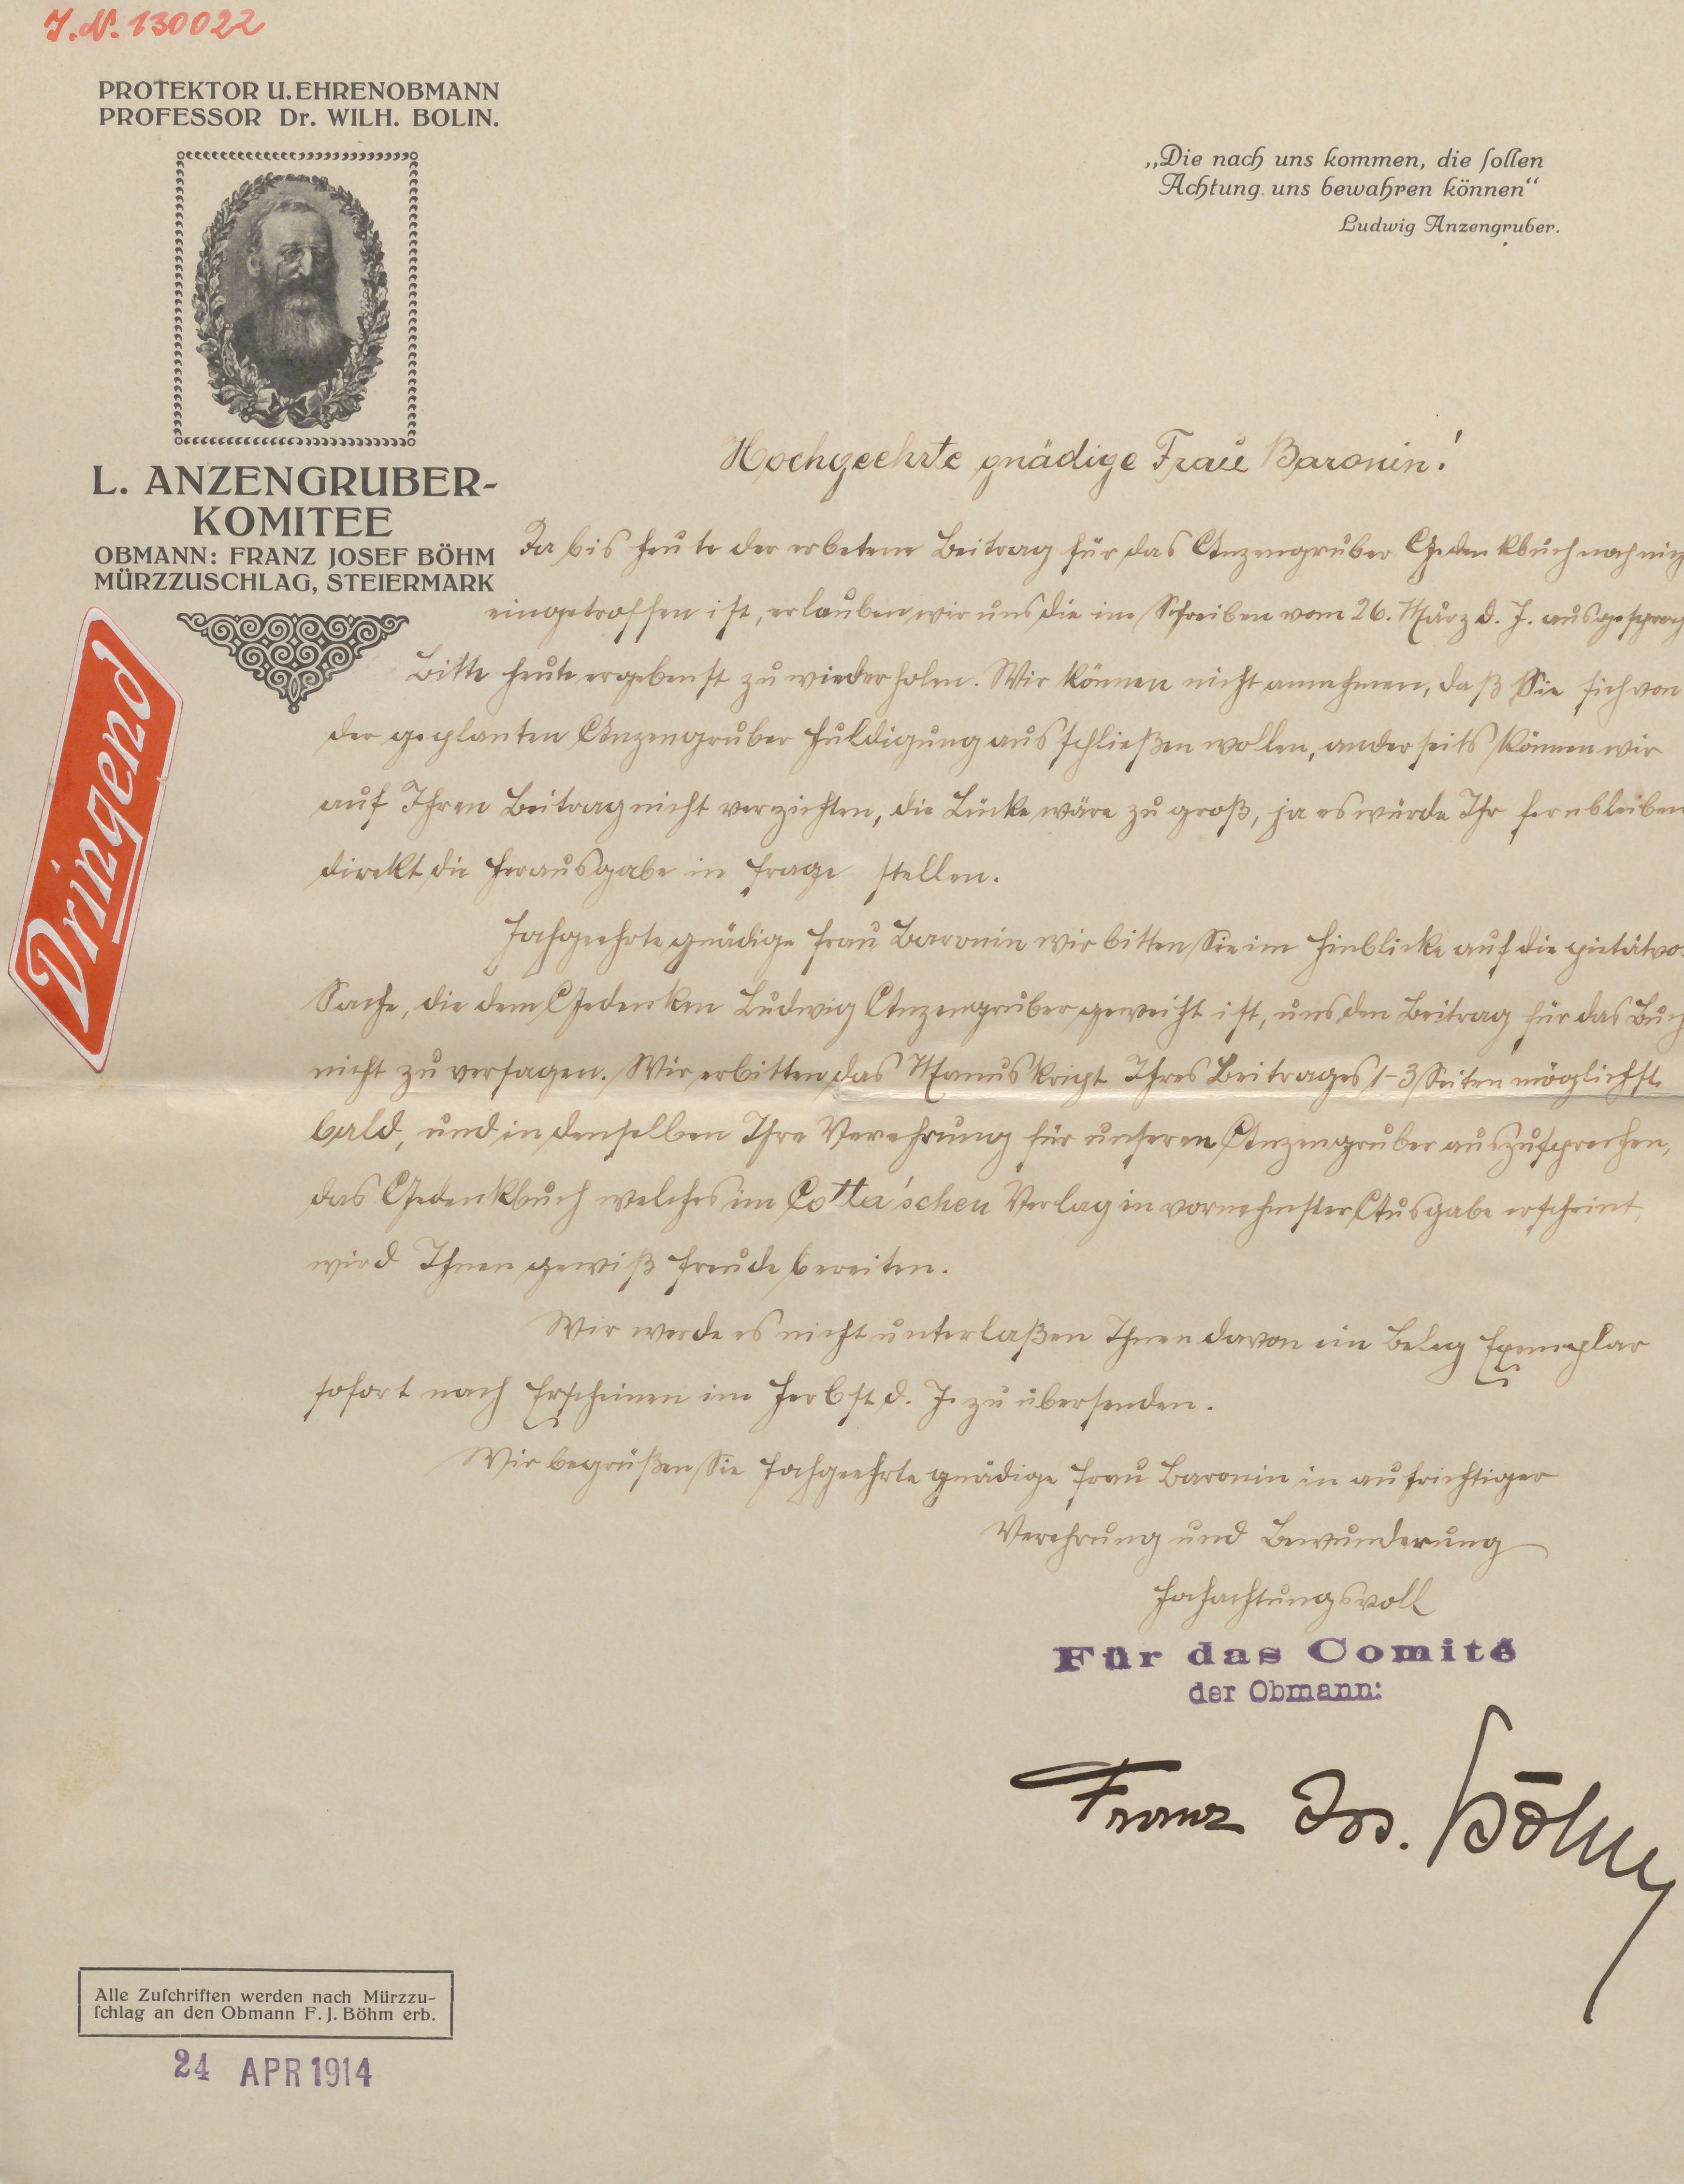 J.N. 130022
PROTEKTOR U. EHRENOBMANN
PROFESSOR Dr. WILH. BOLIN.
„Die nach uns kommen, die ſollen
Achtung uns bewahren können“
Ludwig Anzengruber.
L. ANZENGRUBER-
KOMITEE
OBMANN: FRANZ JOSEF BÖHM
MÜRZZUSCHLAG, STEIERMARK
Dringend
Hochgeehrte gnädige Frau Baronin!
Da bis heute der erbetene Beitrag für das Anzengruber Gedenkbuch noch
eingetroffen ist, erlauben wir uns die im Schreiben vom 26. März d. J.
Bitte heute ergebenst zu wiederholen. Wir können nicht annehmen, daß Sie sich von
der geplanten Anzengruber Huldigung ausschließen wollen, anderseits können wir
auf Ihren Beitrag nicht verzichten, die Lücke wäre zu groß, ja es würde Ihr Fernbleiben
direkt die Herausgabe in Frage stellen.
Hochgeehrte gnädige Frau Baronin wir bitten Sie im Hinblicke auf die
Sache, die dem Gedenken Ludwig Anzengruber geweiht ist, uns den Beitrag für das Buch
nicht zu versagen. Wir erbitten das Manuskript Ihres Beitrages 1-3 Seiten möglichst
bald, und in denselben Ihre Verehrung für unseren Anzengruber auszusprechen,
das Gedenkbuch welches im Cotta'schen Verlag in vornehmster Ausgabe erscheint,
wird Ihnen gewiß Freude bereiten.
Wir werde es nicht unterlaßen Ihnen davon ein Beleg Exemplar
sofort nach Erscheinen im Herbst d. J. zu übersenden.
Wir begrüßen Sie hochgeehrte gnädige Frau Baronin in aufrichtiger
Verehrung und Bewunderung
hochachtungsvoll
Für das Comité
der Obmann:
Franz Jos. Böhm
Alle Zuſchriften werden nach Mürzzu-
ſchlag an den Obmann F. J. Böhm erb.
24 APR 1914